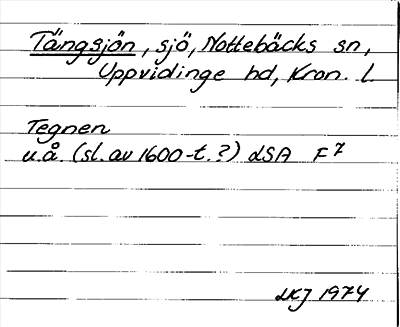 Tängsjön, sjö, Nottebäcks sn,
Uppvidinge hd, Kron. l.
Tegnen
u.å. (sl. av 1600-t.?) LSA F7
1974